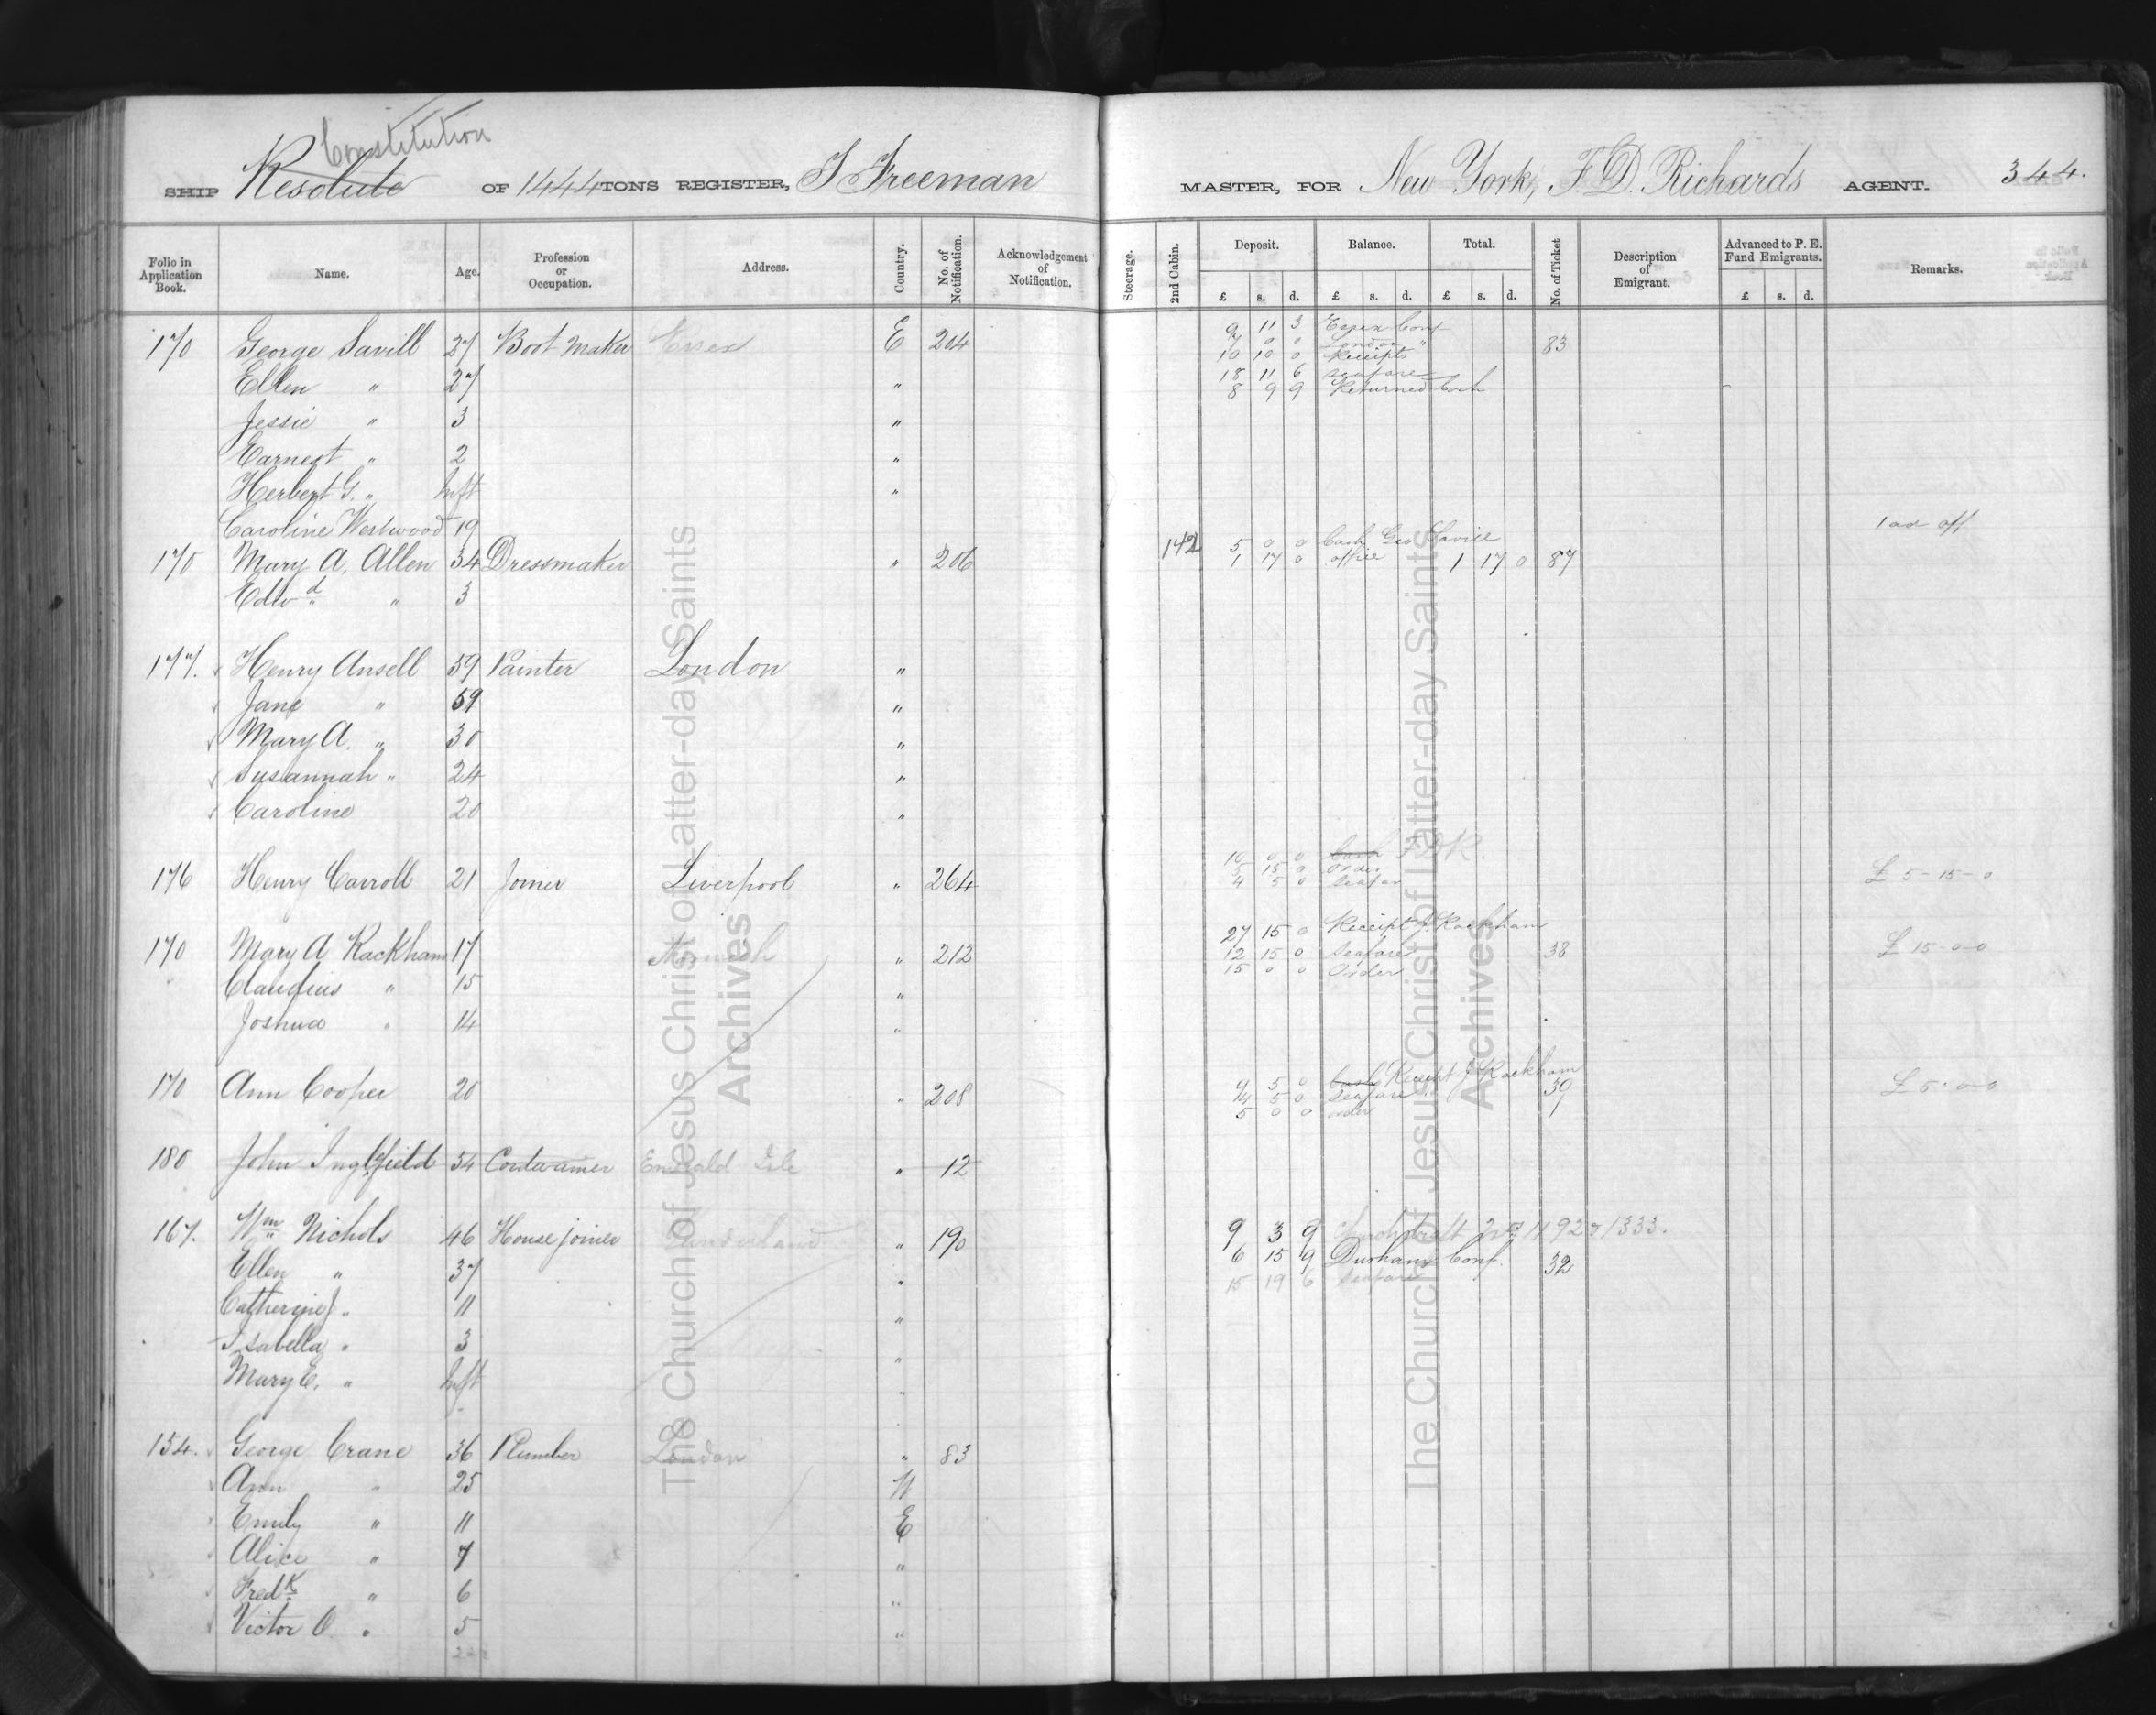 Constitution
SHIP Resolute OF 1444 TONS REGISTER, J Freeman MASTER, FOR New York, F. D. Richards AGENT. 344.
Folio in Application Book. Name. Age. Profession or Occupation. Address. Country. No. of Notification. Acknowledgement of Notification. Steerage. 2nd Cabin. Deposit. Balance. Total. No. of Ticket Description of Emigrant. Advanced to P. E. Fund Emigrants. Remarks.
£ s. d. £ s. d. £ s. d. £ s. d.
9 11 3 Essex Conf
170 George Savill 27 Boot Maker Essex E 204 7 0 0 London " 83
10 10 0 Receipts
18 11 6 seafare
Ellen " 27 " 8 9 9 Returned Cash
Jessie " 3 "
Earnest " 2 "
Herbert G. " Inft "
Caroline Westwood 19 142 5 0 0 Cash Geo Savill
170 Mary A. Allen 34 Dressmaker " 206 1 17 0 office 1 17 0 87
Edwd " 3
177. Henry Ansell 59 Painter London "
Jane " 59 "
Mary A. " 30 "
Susannah " 24 "
Caroline 20 "
10 0 0 Cash F D R.
5 15 0 Order
176 Henry Carroll 21 Joiner Liverpool " 264 4 5 0 Seafare £ 5-15-0
27 15 0 Receipt J. Rackham
170 Mary A Rackham 17 Norwich " 212 12 15 0 Seafare 38 £ 15-0-0
15 0 0 Order
Claudius " 15 "
Joshua " 14 "
9 5 0 Cash Receipt J Rackham
170 Ann Cooper 20 " 208 4 5 0 Seafare 39 £ 5-0-0
5 0 0 order
180 John Inglefield 54 Cordwainer Emerald Isle " 12
167. Wm Nichols 46 House joiner Sunderland " 190 9 3 9
Ellen " 37 " 6 15 9 Durham Conf. 32
15 19 6 Seafare
Catherine J " 11 "
Isabella " 3 "
Mary E. " Inft "
154. George Crane 36 Plumber London " 83
Ann " 25 W
Emily " 11 E
Alice " 7 "
Fredk " 6 "
Victor O " 5 "
The Church of Jesus Christ of Latter-day Saints
Archives
The Church of Jesus Christ of Latter-day Saints
Archives